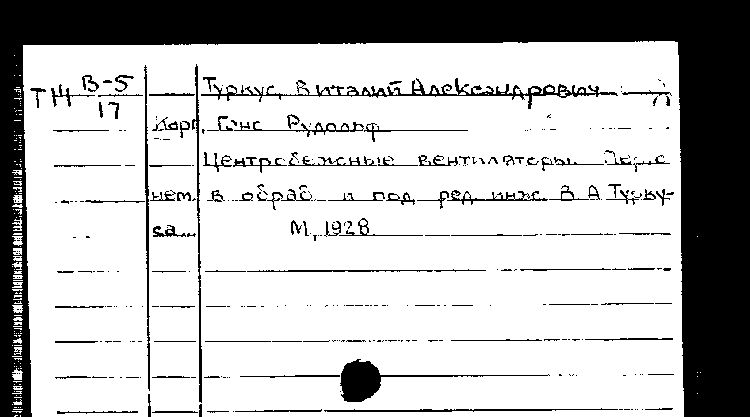 ТЖ В-5
17
Туркус, Виталий Александрович
Карг, Ганс Рудольф
Центробежные вентиляторы. Пер. с
нем. в обраб и под ред инж. В А Турку-
са
М, 1928